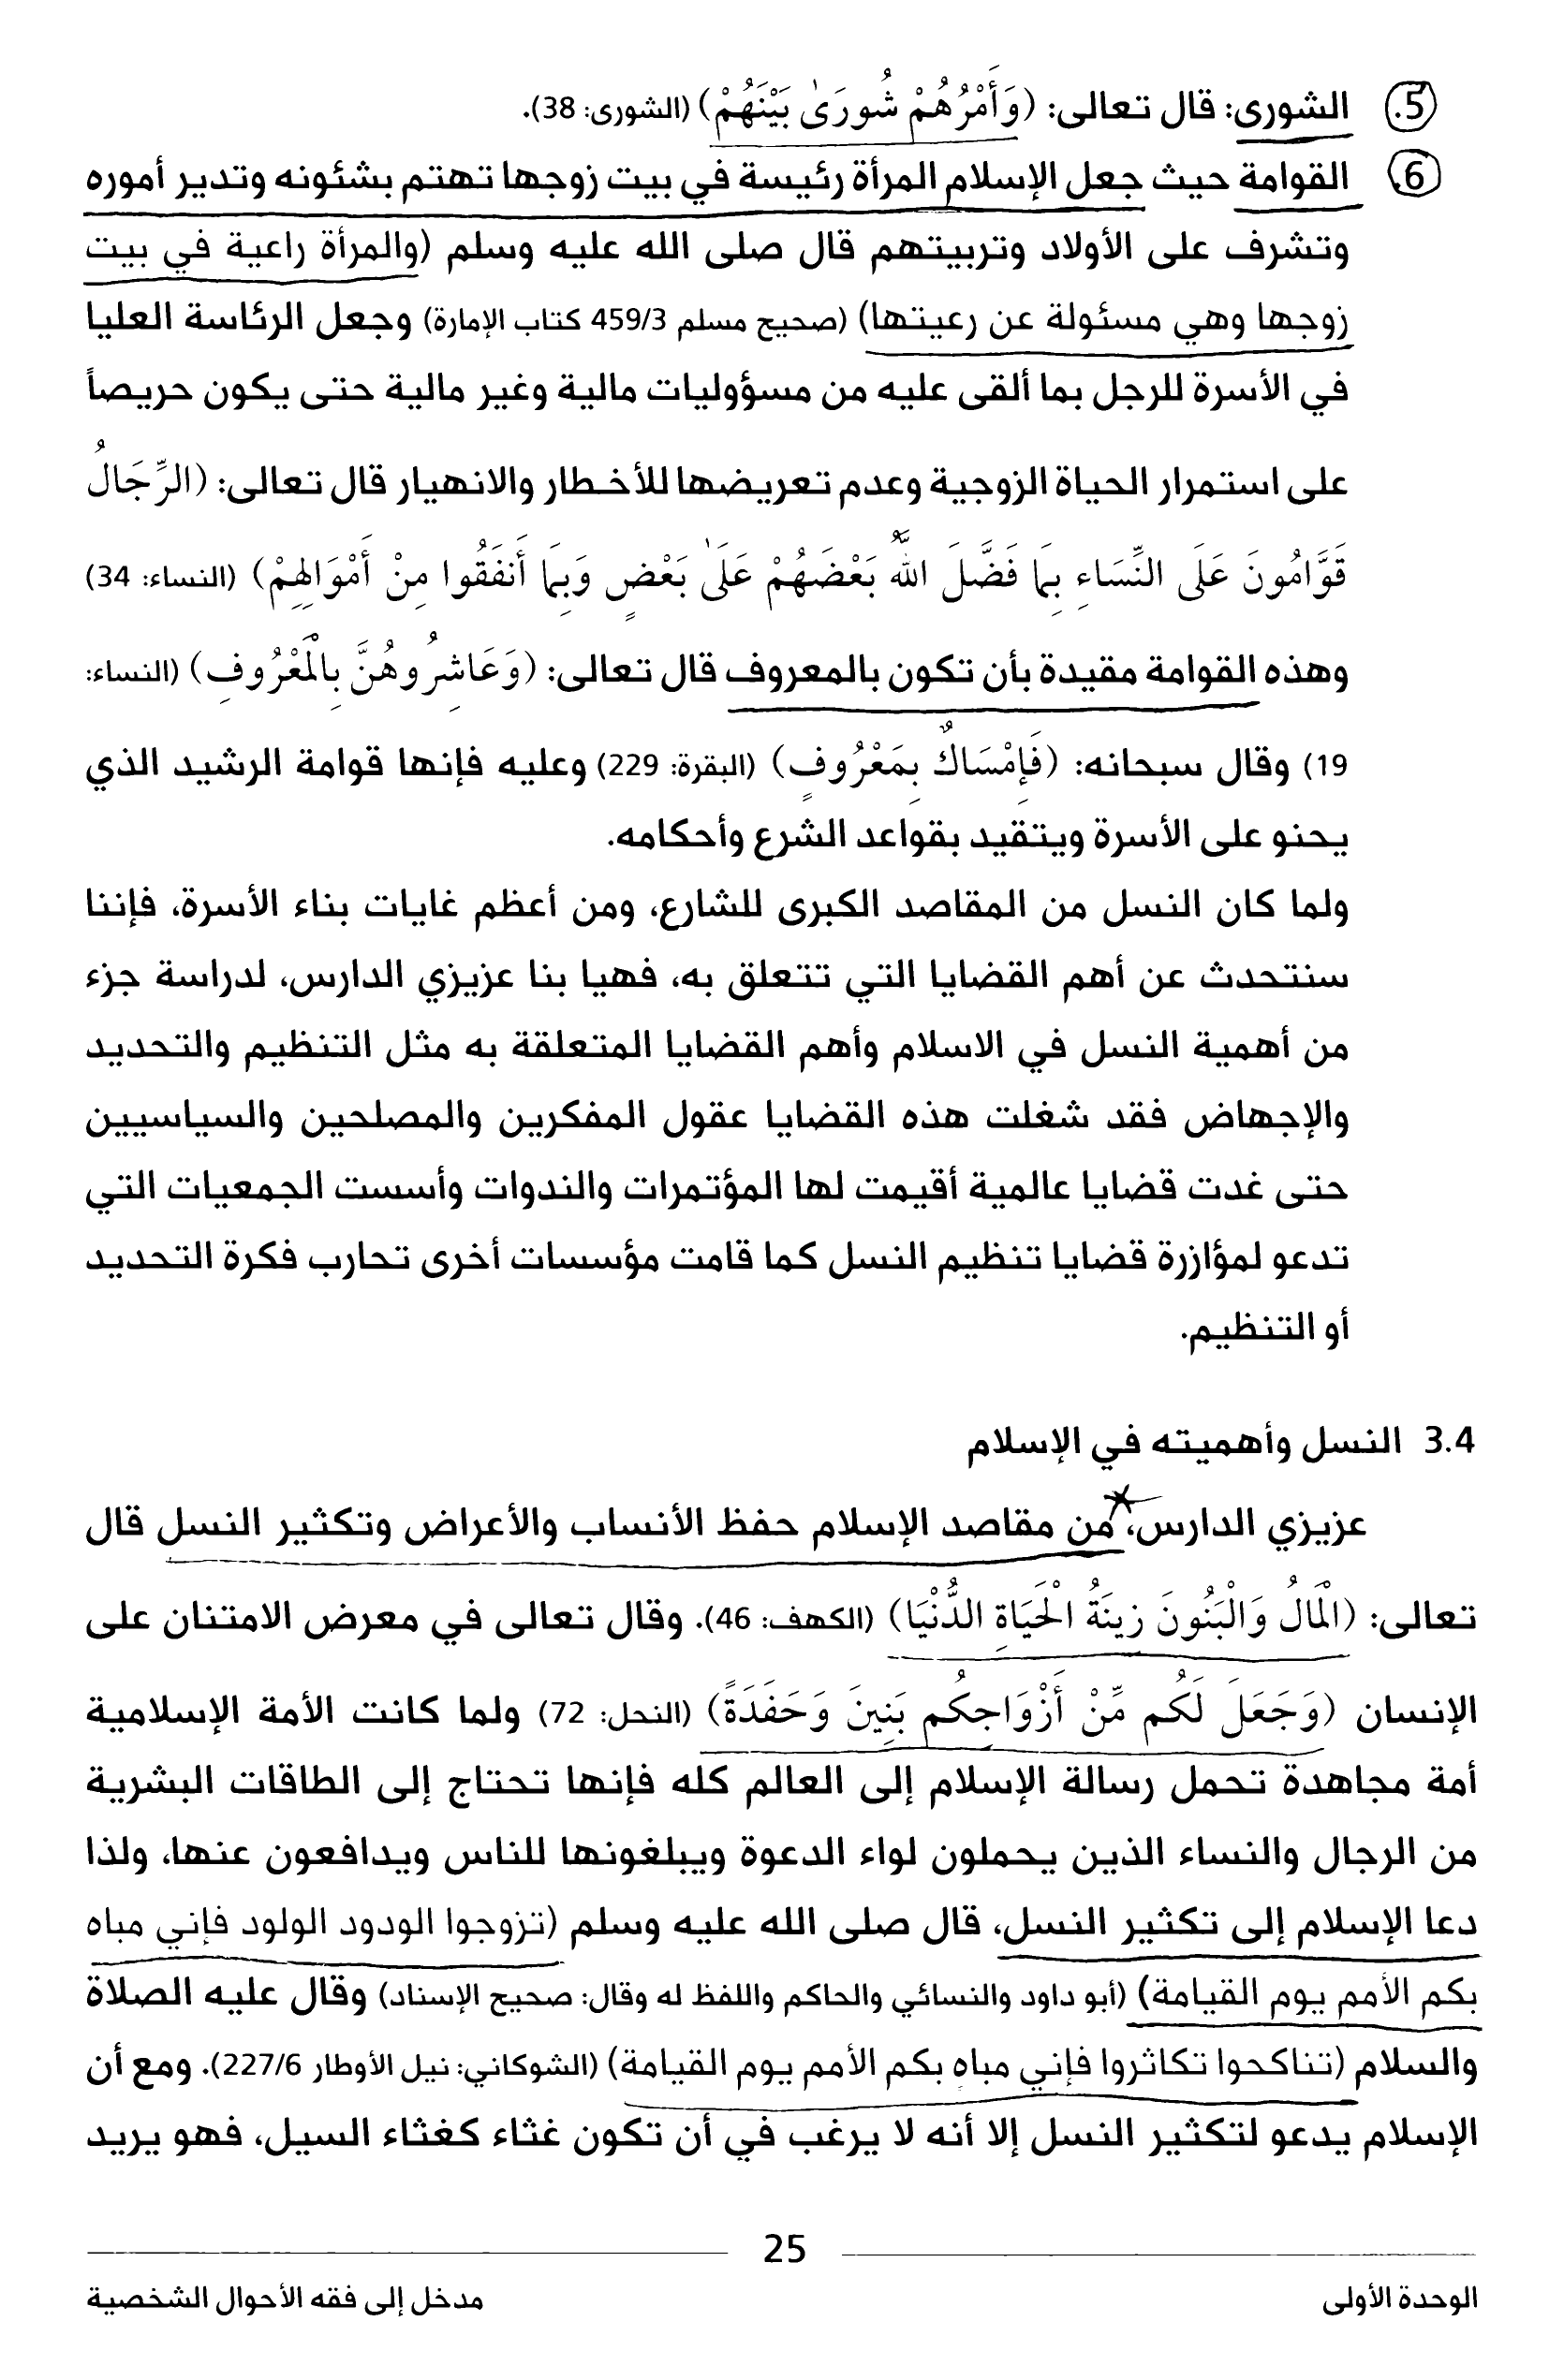 5. الشورى: قال تعالى: (وَأَمْرُهُمْ شُورَىٰ بَيْنَهُمْ) (الشورى: 38).
6. القوامة حيث جعل الإسلام المرأة رئيسة في بيت زوجها تهتم بشئونه وتدير أموره
وتشرف على الأولاد وتربيتهم قال صلى الله عليه وسلم (والمرأة راعية في بيت
زوجها وهي مسئولة عن رعيتها) (صحيح مسلم 459/3 كتاب الإمارة) وجعل الرئاسة العليا
في الأسرة للرجل بما ألقى عليه من مسؤوليات مالية وغير مالية حتى يكون حريصاً
على استمرار الحياة الزوجية وعدم تعريضها للأخطار والانهيار قال تعالى: (الرِّجَالُ
قَوَّامُونَ عَلَى النِّسَاءِ بِمَا فَضَّلَ اللَّهُ بَعْضَهُمْ عَلَىٰ بَعْضٍ وَبِمَا أَنفَقُوا مِنْ أَمْوَالِهِمْ) (النساء: 34)
وهذه القوامة مقيدة بأن تكون بالمعروف قال تعالى: (وَعَاشِرُوهُنَّ بِالْمَعْرُوفِ) (النساء:
19) وقال سبحانه: (فَإِمْسَاكٌ بِمَعْرُوفٍ) (البقرة: 229) وعليه فإنها قوامة الرشيد الذي
يحنو على الأسرة ويتقيد بقواعد الشرع وأحكامه.
ولما كان النسل من المقاصد الكبرى للشارع، ومن أعظم غايات بناء الأسرة، فإننا
سنتحدث عن أهم القضايا التي تتعلق به، فهيا بنا عزيزي الدارس، لدراسة جزء
من أهمية النسل في الاسلام وأهم القضايا المتعلقة به مثل التنظيم والتحديد
والإجهاض فقد شغلت هذه القضايا عقول المفكرين والمصلحين والسياسيين
حتى غدت قضايا عالمية أقيمت لها المؤتمرات والندوات وأسست الجمعيات التي
تدعو لمؤازرة قضايا تنظيم النسل كما قامت مؤسسات أخرى تحارب فكرة التحديد
أو التنظيم.
3.4 النسل وأهميته في الإسلام
عزيزي الدارس، من مقاصد الإسلام حفظ الأنساب والأعراض وتكثير النسل قال
تعالى: (الْمَالُ وَالْبَنُونَ زِينَةُ الْحَيَاةِ الدُّنْيَا) (الكهف: 46). وقال تعالى في معرض الامتنان على
الإنسان (وَجَعَلَ لَكُم مِّنْ أَزْوَاجِكُم بَنِينَ وَحَفَدَةً) (النحل: 72) ولما كانت الأمة الإسلامية
أمة مجاهدة تحمل رسالة الإسلام إلى العالم كله فإنها تحتاج إلى الطاقات البشرية
من الرجال والنساء الذين يحملون لواء الدعوة ويبلغونها للناس ويدافعون عنها، ولذا
دعا الإسلام إلى تكثير النسل، قال صلى الله عليه وسلم (تزوجوا الودود الولود فإني مباه
بكم الأمم يوم القيامة) (أبو داود والنسائي والحاكم واللفظ له وقال: صحيح الإسناد) وقال عليه الصلاة
والسلام (تناكحوا تكاثروا فإني مباه بكم الأمم يوم القيامة) (الشوكاني: نيل الأوطار 227/6). ومع أن
الإسلام يدعو لتكثير النسل إلا أنه لا يرغب في أن تكون غثاء كغثاء السيل، فهو يريد
25
الوحدة الأولى
مدخل إلى فقه الأحوال الشخصية